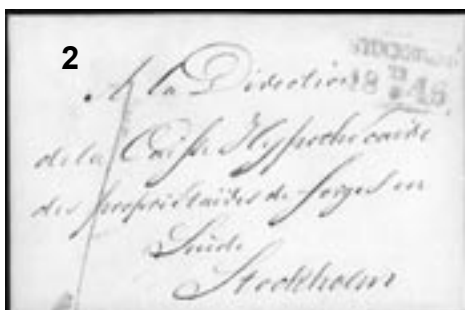 2
STOCKHOLM
18 46
A la Direction
de la Caisse Hypothecaire
des propriétaires de forges en
Suède
Stockholm